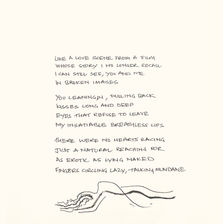 LIKE A LOVE SCENE FROM A FILM
WHOSE STORY I NO LONGER RECALL
I CAN STILL SEE, YOU AND ME
IN BROKEN IMAGES
YOU LEANING IN, PULLING BACK
KISSES LONG AND DEEP
EYES THAT REFUSE TO LEAVE
MY INSATIABLE BREATHLESS LIPS
THERE WERE NO HEARTS RACING
JUST A NATURAL REACHING FOR
AS EXOTIC AS LYING NAKED
FINGERS CIRCLING LAZY, TALKING MUNDANE